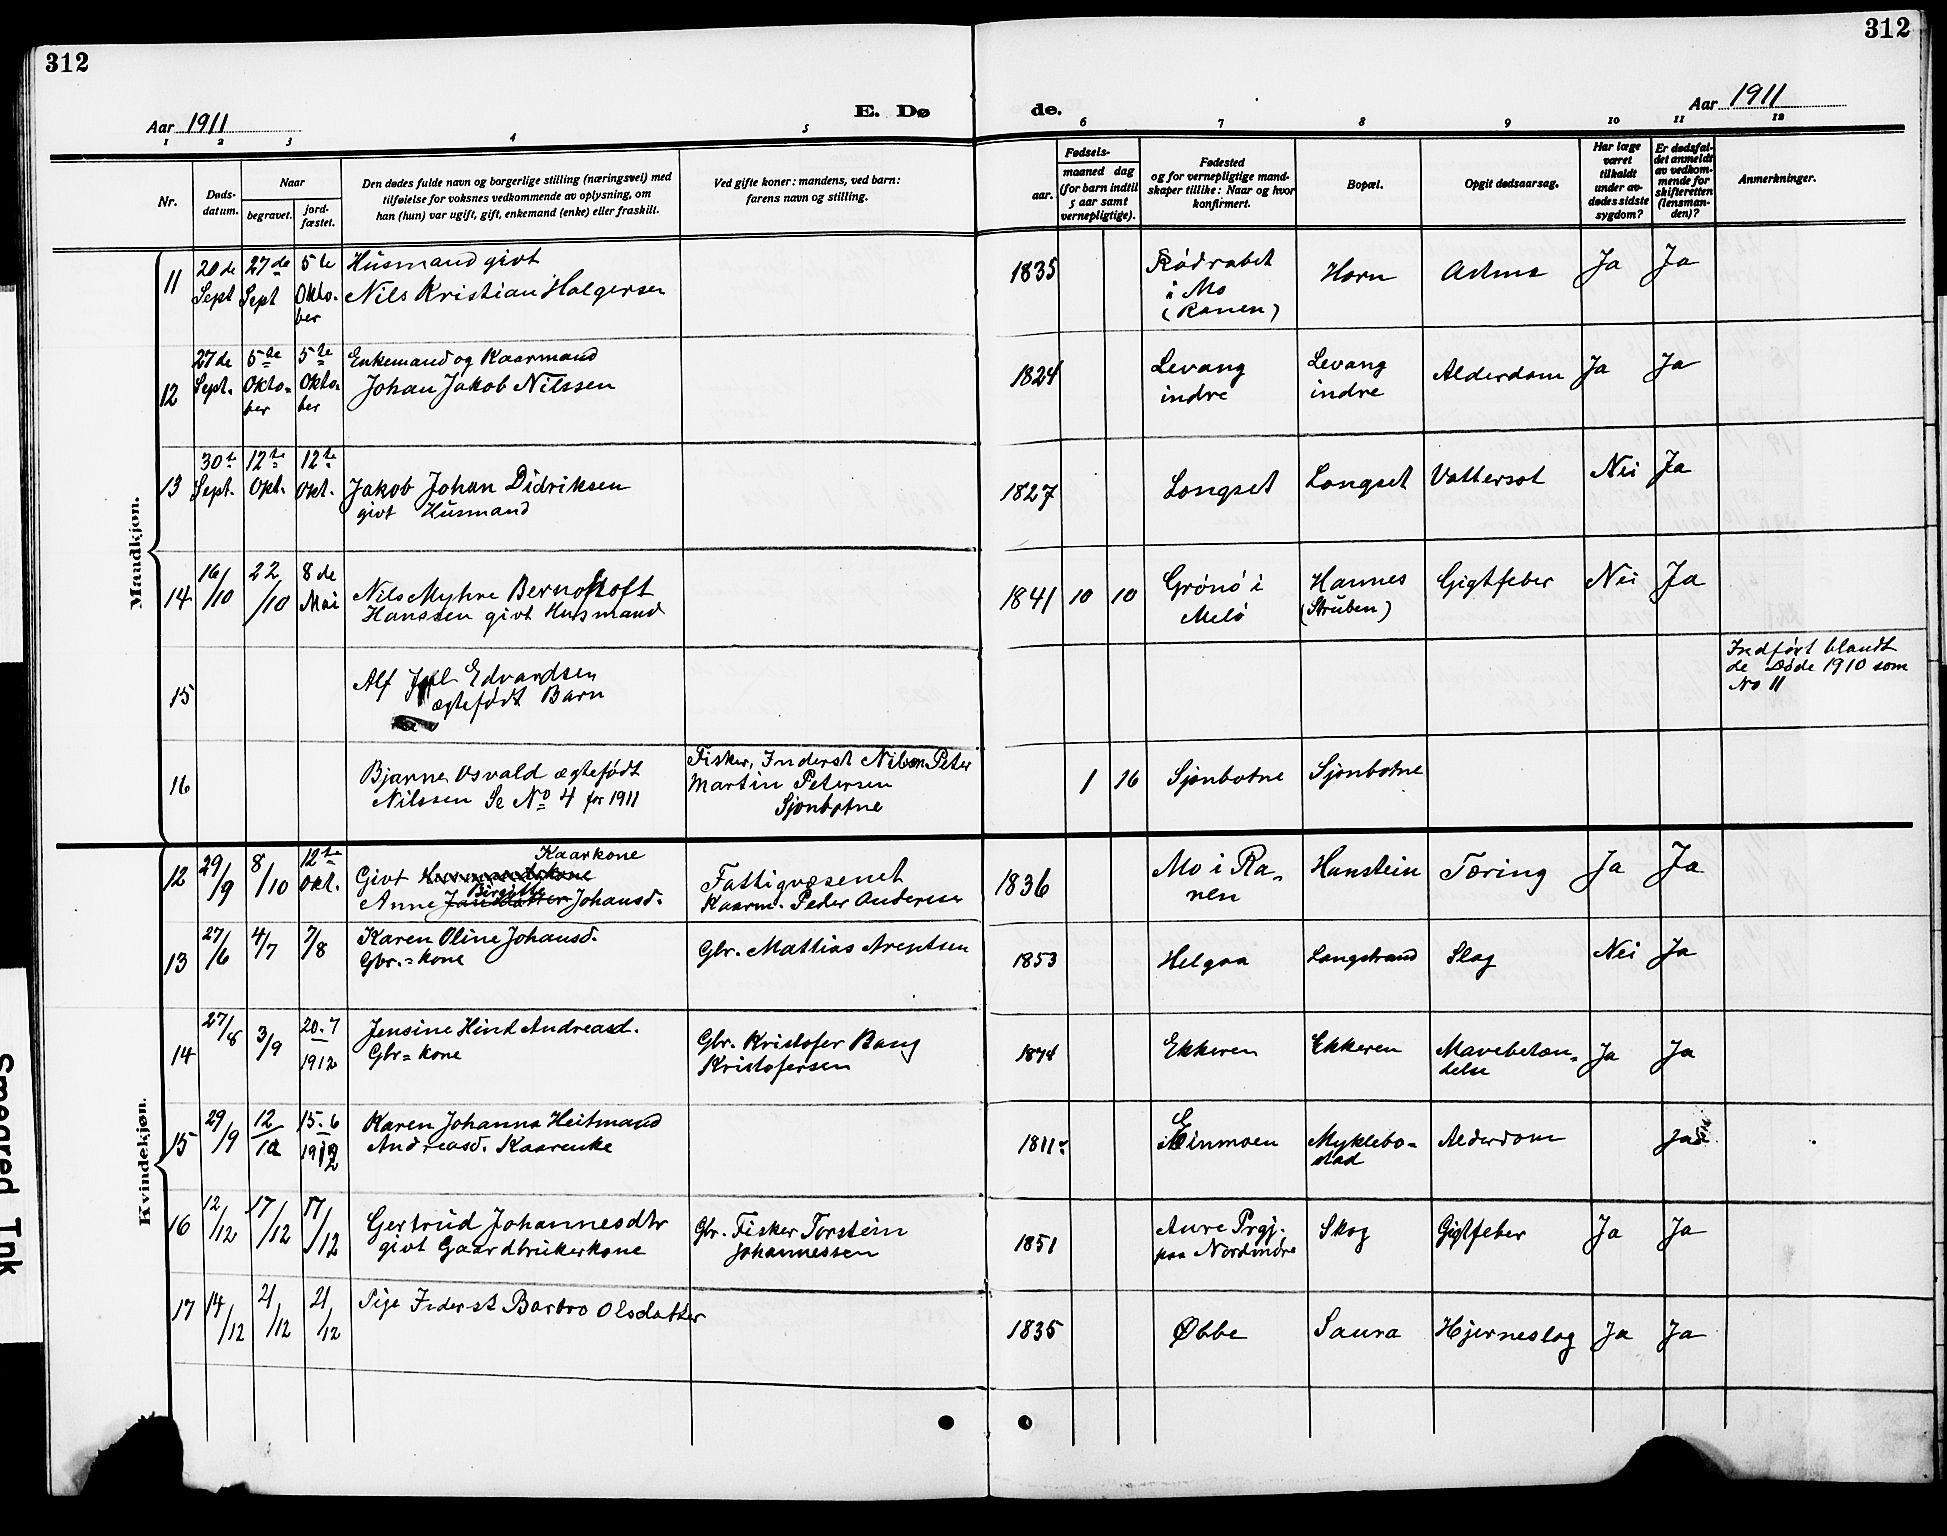 312
312
Aar 1911
E. Dø
de.
Aar 1911
1 2 3 4 5 6 7 8 9 10 11 12
Nr.
Døds-
datum.
Naar
begravet.
jord-
fæstet.
Den dødes fulde navn og borgerlige stilling (næringsvei) med
tilføielse for voksnes vedkommende av oplysning, om
han (hun) var ugift, gift, enkemand (enke) eller fraskilt.
Ved gifte koner: mandens, ved barn:
farens navn og stilling.
Fødsels-
aar.
maaned dag
(for barn indtil
5 aar samt
vernepligtige).
Fødested
og for vernepligtige mand-
skaper tillike: Naar og hvor
konfirmert.
Bopæl.
Opgit dødsaarsag.
Har læge
været
tilkaldt
under av-
dødes sidste
sygdom?
Er dødsfal-
det anmeldt
av vedkom-
mende for
skifteretten
(lensman-
den)?
Anmerkninger.
Mandkjøn.
11
20de
Sept
27de
Sept
5te
Okto-
ber
Husmand givt
Nils Kristian Holgersen
1835
Rødrabet
i Mo
(Ranen)
Horn
Astma
Ja
Ja
12
27de
Sept.
5te
Okto-
ber
5te
Okto-
ber
Enkemand og Kaarmand
Johan Jakob Nilssen
1824
Levang
indre
Levang
indre
Alderdom
Ja
Ja
13
30te
Sept.
12te
Okt.
12te
Okt.
Jakob Johan Didriksen
givt Husmand
1827
Longset
Longset
Vattersot
Nei
Ja
14
16/10
22/10
8de
Mai
Nils Myhre Bernohoft
Hanssen givt Husmand
1841 10 10
Grønø i
Melø
Hannes
(Struben)
Gigtfeber
Nei
Ja
15
Alf Edvardsen
ægtefødt Barn
Indført blandt
de Døde 1910 som
No 11
16
Bjarne Osvald ægtefødt
Nilssen Se No 4 for 1911
Fisker, Inderst Nilsen Peter
Martin Petersen
Sjonbotne
1 16
Sjonbotne
Sjonbotne
Kvindekjøn.
12
29/9
8/10
12te
Okt.
Kaarkone
Givt
Birgitte
Anne Jansdatter Johansd.
Fattigvæsenet
Kaarm. Peder Andersen
1836
Mo i Ra-
nen
Hanstein
Tæring
Ja
Ja
13
27/6
4/7
7/8
Karen Oline Johansd.
Gbr.=kone
Gbr. Mattias Arentsen
1853
Helgaa
Langstrand
Slag
Nei
Ja
14
27/8
3/9
20-7
1912
Jensine Hind Andreasd.
Gbr=kone
Gbr. Kristofer Bang
Kristofersen
1874
Ekkeren
Ekkeren
Mavebetæn-
delse
Ja
Ja
15
29/9
12/10
15-6
1912
Karen Johanna Heitmand
Andreasd. Kaarenke
1811
Einmoen
Myklebo-
stad
Alderdom
Ja
16
12/12
17/12
17/12
Gertrud Johannesdtr
givt Gaardbrukerkone
Gbr. Fisker Torstein
Johannessen
1851
Aure Prgj.
paa Nordmøre
Skog
Gigtfeber
Ja
Ja
17
14/12
21/12
21/12
Pige Inderst Barbro Olsdatter
1835
Øbbe
Saura
Hjerneslag
Ja
Ja